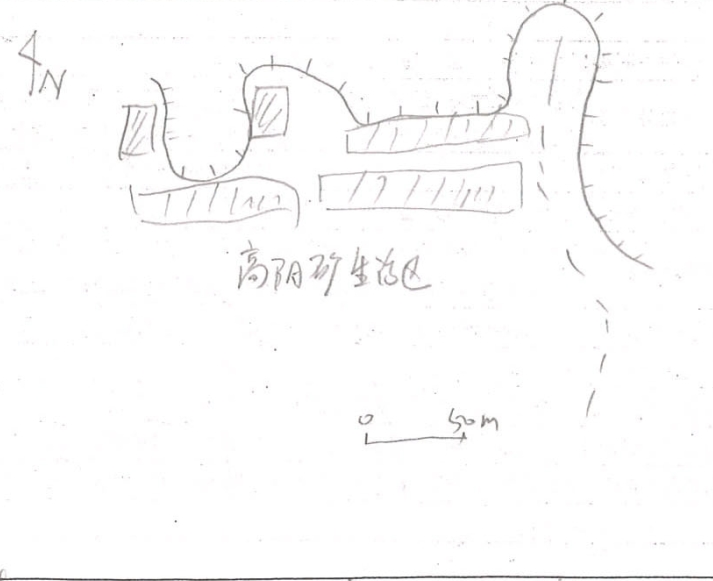 N
高阳矿生活区
0 50m